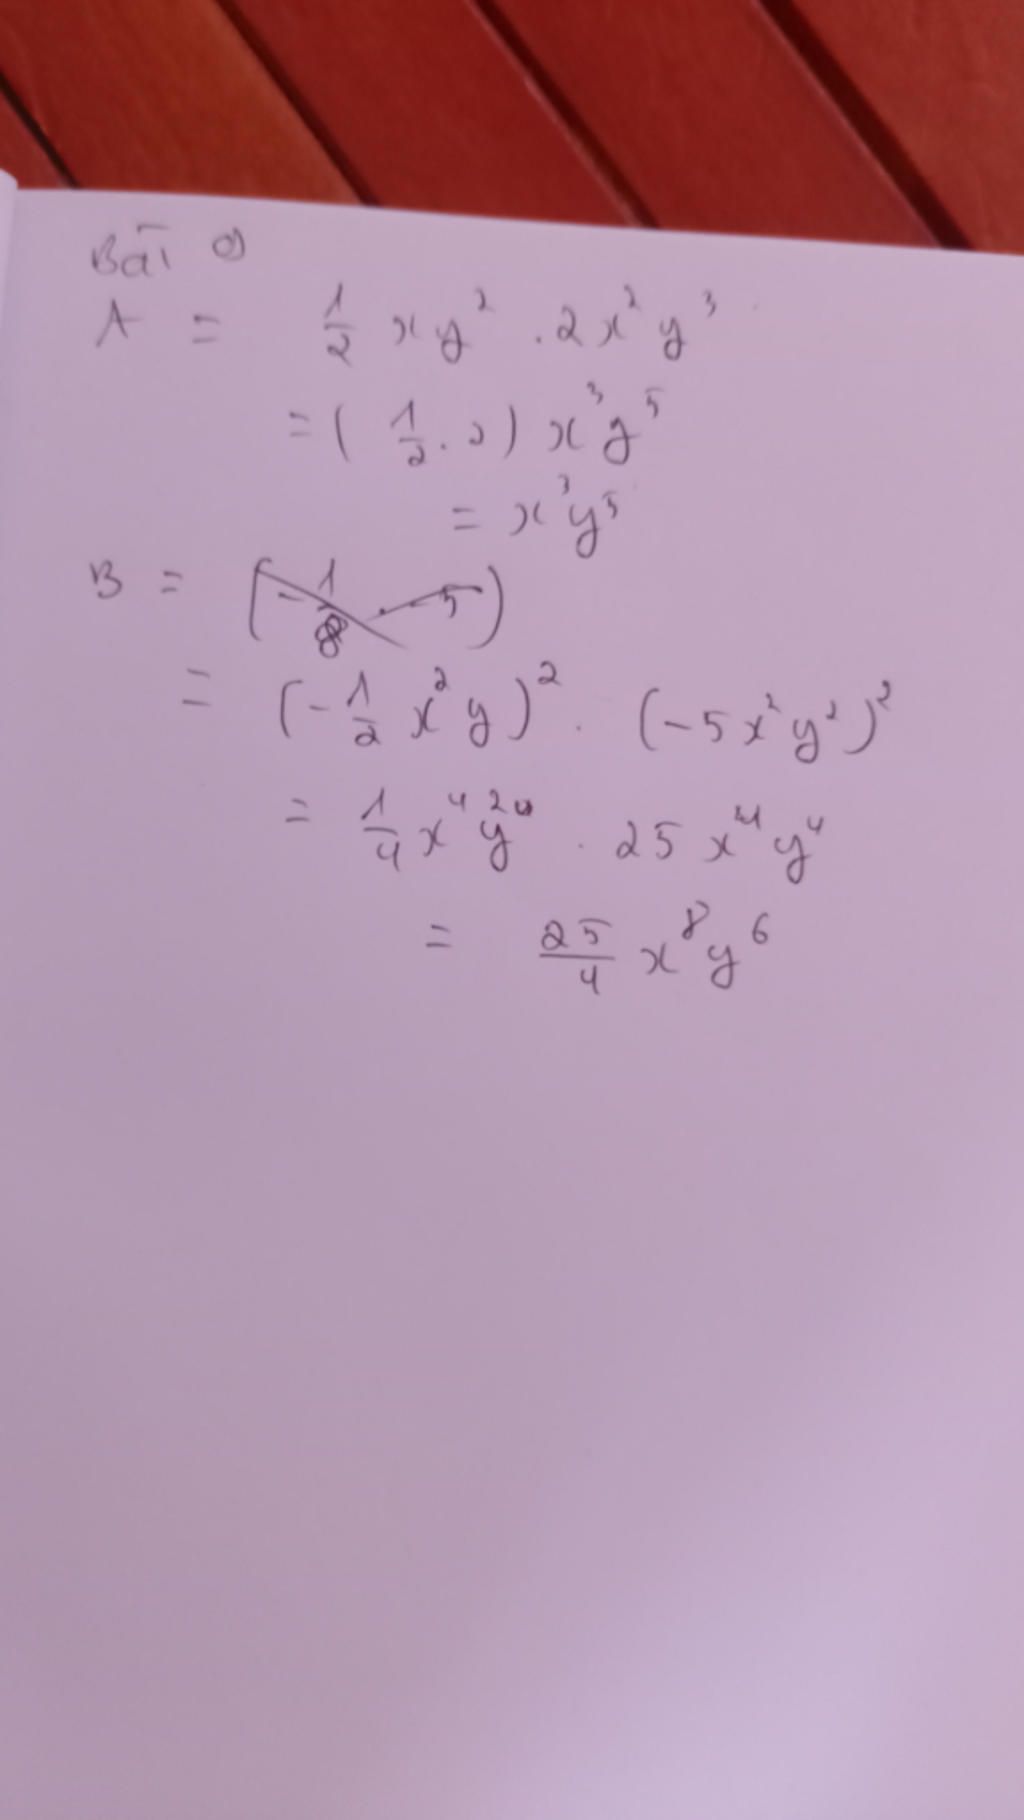 Bài
A = 1/2 xy² . 2x²y³
= ( 1/2 . 2 ) x³y⁵
= x³y⁵
B = (-1/8 . -5)
= (-1/2 x²y)² . (-5x²y²)²
= 1/4 x⁴y² . 25x⁴y⁴
= 25/4 x⁸y⁶